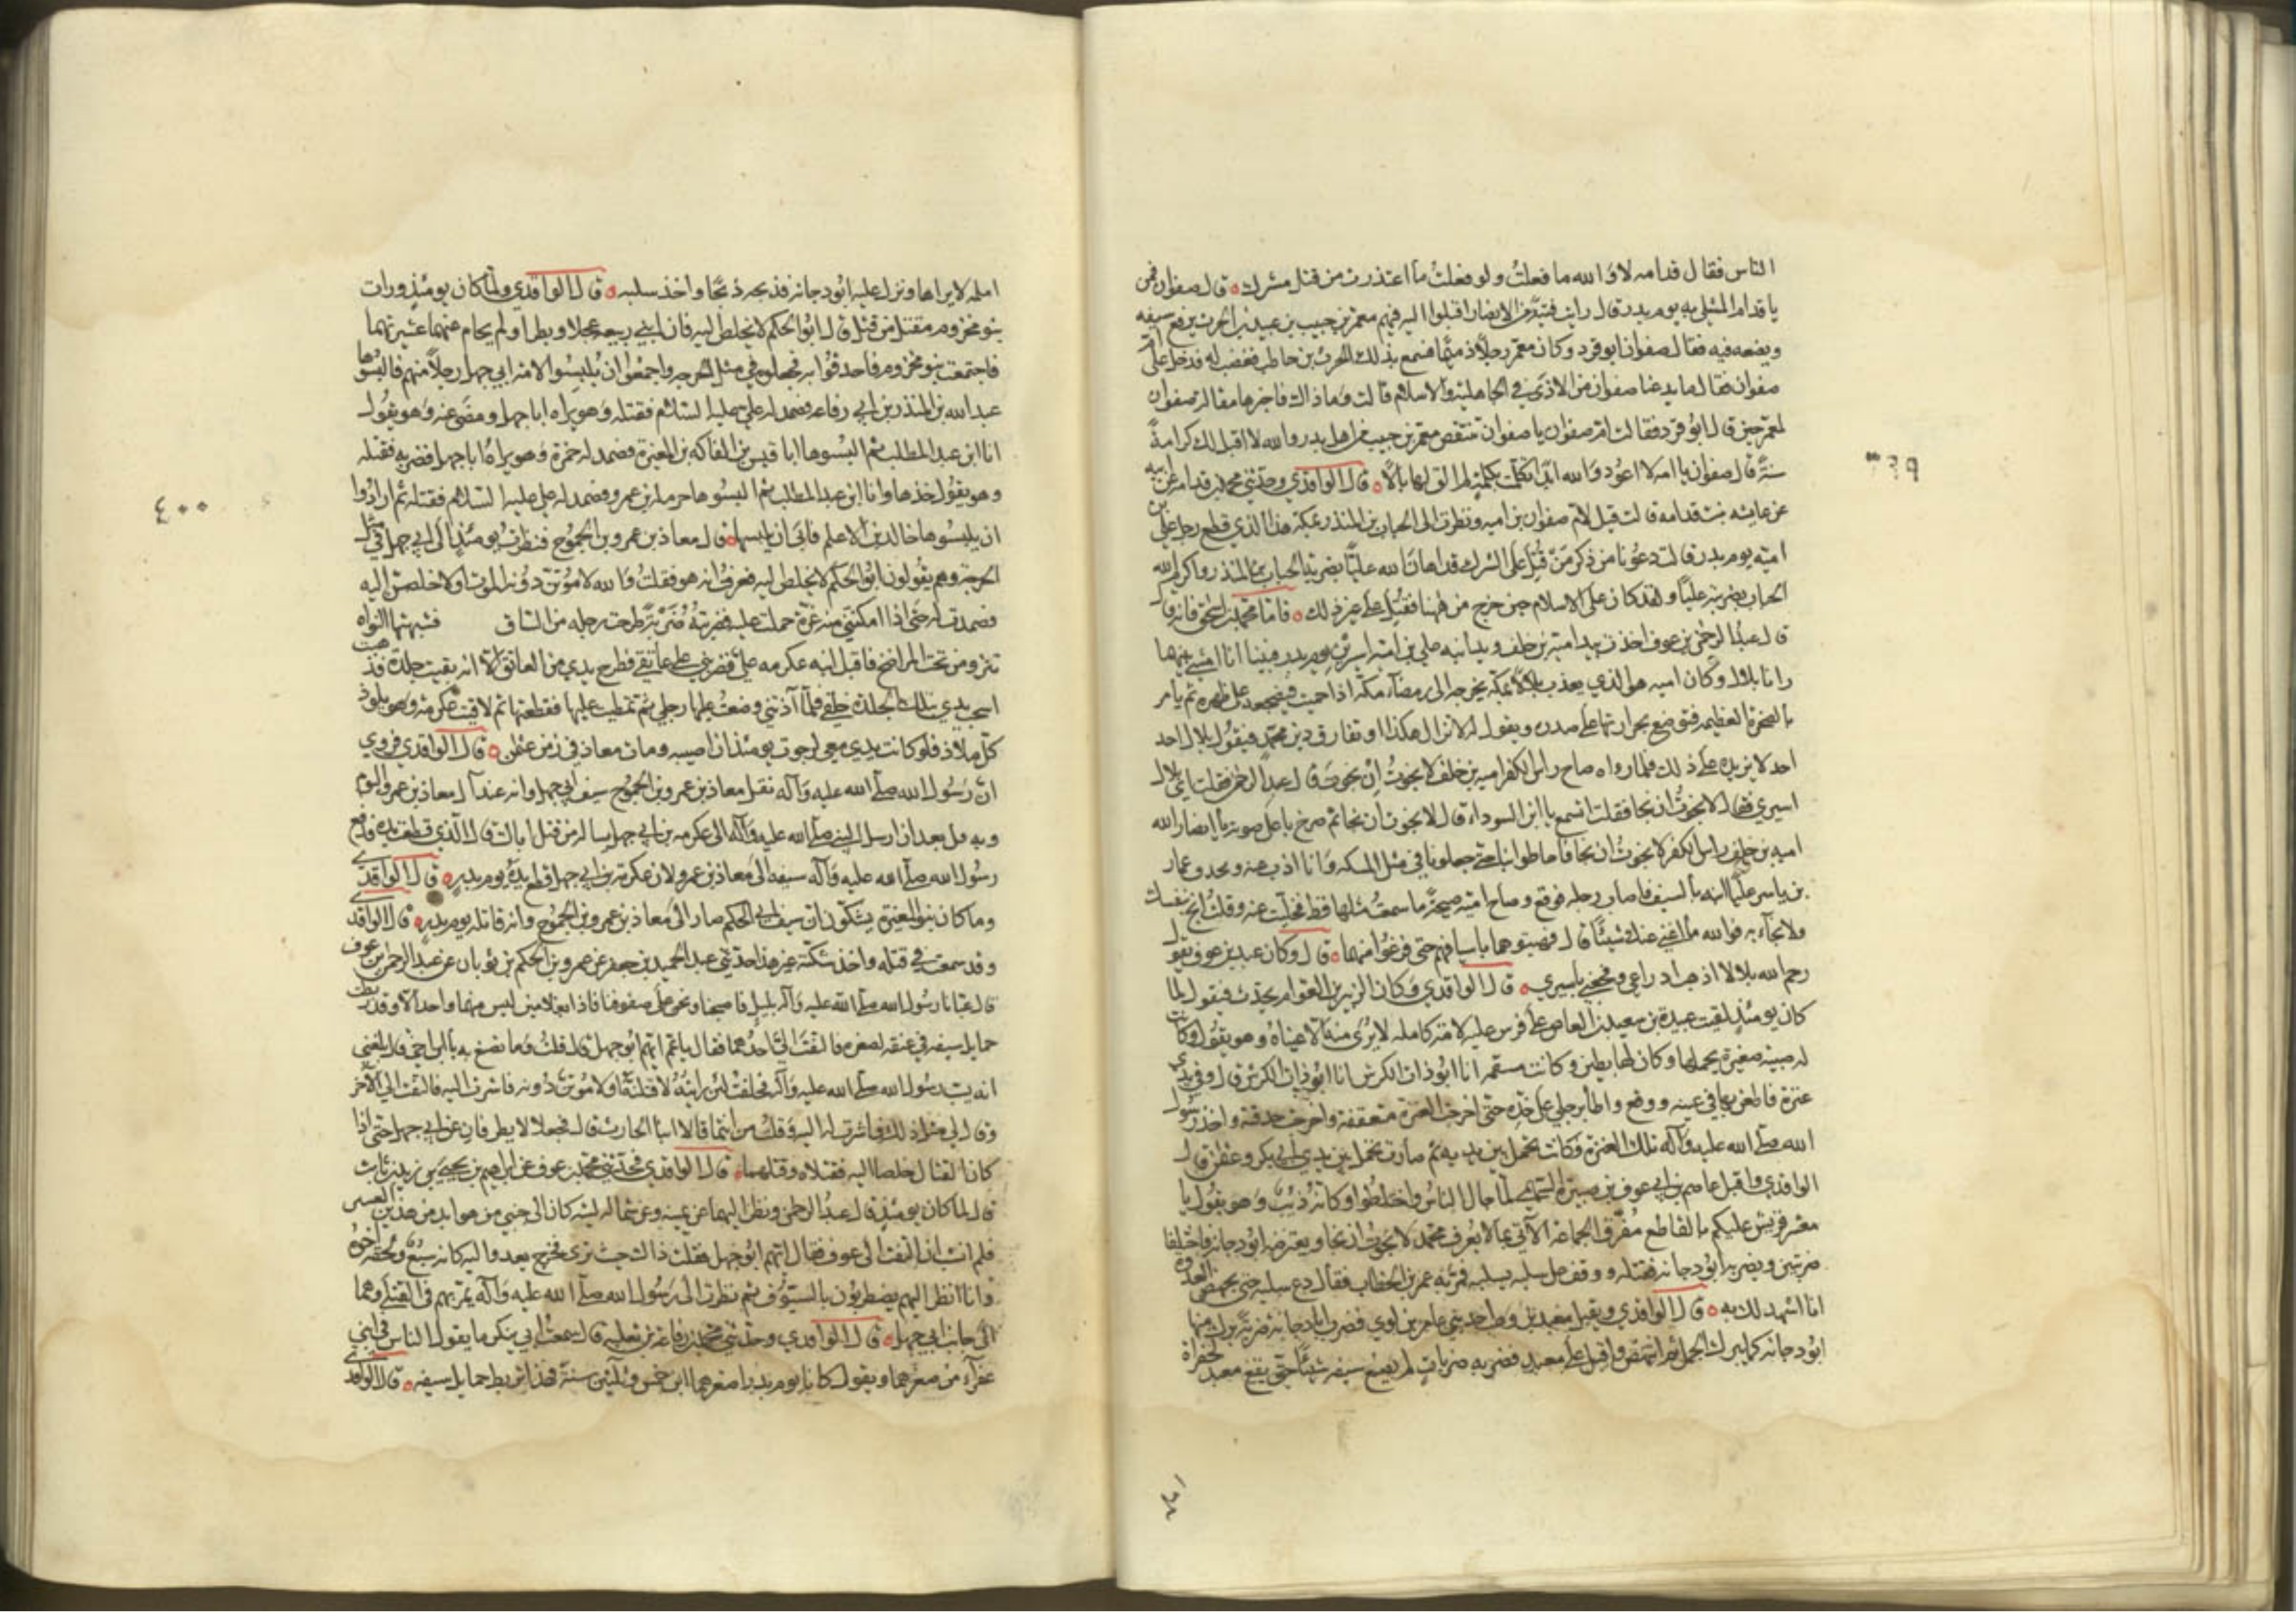 الناس فقال قدامه لا والله ما فعلتُ ولو فعلتُ ما اعتذرت من قتل مشرك ٥ قال صفوان فمن
يا قدام المثلى به يوم بدر قال رايت فتية من الانصار اقبلوا اليه فيهم معمر بن حبيب بن عبيد بن الحرث يرفع سيفه
ويضعه فيه فقال صفوان ابو قرد وكان معمر رجلاً ذميمًا فسمع بذلك الحرث بن حاطب فغضب له فدخل على ام
صفوان فقال ما يدعنا صفوان من الاذى في الجاهلية والاسلام قالت وما ذاك فاخبرها مقالة صفوان
لمعمر حين قال ابو قرد فقالت ام صفوان يا صفوان تنتقص معمر بن حبيب من اهل بدر والله لا اقبل لك كرامةً
سنةً قال صفوان يا امه لا اعود والله ابدًا تكلمت بكلمة لم الق لها بالًا ٥ قال الواقدي وحدثني محمد بن قدامه عن ابيه
عن عايشه بنت قدامه قالت قيل لام صفوان بن اميه ونظرت الى الحباب بن المنذر بمكة هذا الذي قطع رجل علي بن
اميه يوم بدر قالت دعونا من ذكر من قُتل على الشرك قد اهان الله عليًا بضربة الحباب بن المنذر واكرم الله
الحباب بضربته عليًا ولقد كان على الاسلام حين خرج من هاهنا فقُتل على غير ذلك ٥ فاما محمد بن اسحق فانه قال
قال عبد الرحمن بن عوف اخذت بيد اميه بن خلف وبيد ابنه علي بن اميه اسيرين يوم بدر فبينا انا امشي بينهما
رانا بلال وكان اميه هو الذي يعذب بلالاً بمكه يخرجه الى رمضاء مكة اذا حميت فيضجعه على ظهره ثم يامر
بالصخرة العظيمه فتوضع بحرارتها على صدره ويقول له لا تزال هكذا او تفارق دين محمد فيقول بلال احد
احد لا يزيده على ذلك فلما رواه صاح راس الكفر اميه بن خلف لا نجوتُ ان نجوتَ قال عبد الرحمن فقلت اي بلال
اسيري فقال لا نجوتُ ان نجا فقلت اتسمع يا ابن السوداء قال لا نجوت ان نجا ثم صرخ باعلى صوته يا انصار الله
اميه بن خلف راس الكفر لا نجوتُ ان نجا فاحاطوا بنا حتى جعلونا في مثل المسكه وانا اذب عنه ويحدو عمار
بن ياسر عليًا ابنه بالسيف فاصاب رجله فوقع وصاح اميه صيحةً ما سمعتُ مثلها قط فخليت عنه وقلت انج بنفسك
ولا نجاء به فوالله ما اغني عنك شيئًا قال فهبتوهما باسيافهم حتى فرغوا منهما ٥ قال وكان عبد الرحمن بن عوف يقول
رحم الله بلالا اذهب ادراعي وفجعني باسيري ٥ قال الواقدي وكان الزبير بن العوام يحدث فيقول لما
كان يومئذٍ لقيت عبيدة بن سعيد بن العاص على فرس عليه لامة كامله لا يُرى منه الا عيناه وهو يقول وكانت
له صبيه صغيرة يحملها وكان لها بطين وكانت مستقمه انا ابو ذات الكرش انا ابو ذات الكرش قال وفي يدي
عنزة فاطعن بها في عينه ووقع واطا برجلي على خده حتى اخرجت العنزة متعقفة واخرجت حدقته واخذ رسول
الله صلى الله عليه وآله تلك العنزة فكانت تحمل بين يديه ثم صارت تحمل بين يدي ابي بكر وعمر قال
الواقدي واقبل عاصم بن ابي عوف بن صبيرة السهمي لما جال الناس واختلطوا وكانه ذئب وهو يقول يا
معشر قريش عليكم بالقاطع مفرق الجماعة الآتي بما لا يعرف محمد لا نجوتُ ان نجا ويعترضه ابو دجانه فاختلفا
ضربتين ويضربه ابو دجانه فقتله ووقف على سلبه يسلبه فمر به عمر بن الخطاب فقال دع سلبه حتى يجهض العدو
انا اشهد لك به ٥ قال الواقدي ويقبل معبد بن وهب احد بني عامر بن لوي فضرب ابا دجانه ضربةً برك منها
ابو دجانه كما يبرك الجمل ثم انتهض واقبل على معبد فضربه ضربات لم يصنع سيفه شيئًا حتى يقع معبد لحفرة
٣٩٩
امامه لا يراها ونزل عليه ابو دجانه فذبحه ذبحًا واخذ سلبه ٥ قال الواقدي ولما كان يومئذ ورات
بنو مخزوم مقتل من قتل قال ابو الحكم لا يخلص اليه فان ابني ربيعه عجلا وبطرا ولم يحام عنهما عشيرتهما
فاجتمعت بنو مخزوم فاحدقوا به فجعلوه في مثل الحرجه واجمعوا ان يُلبسوا لامة ابي جهل رجلاً منهم فالبسوها
عبد الله بن المنذر بن ابي رفاعه فصمد له علي عليه السلام فقتله وهو يراه ابا جهل ومضى عنه وهو يقول
انا ابن عبد المطلب ثم البسوها ابا قيس بن الفاكه بن المغيرة فصمد له حمزة وهو يراهُ ابا جهل فضربه فقتله
وهو يقول خذها وانا ابن عبد المطلب ثم البسوها حرمله بن عمرو فصمد له علي عليه السلام فقتله ثم ارادوا
ان يلبسوها خالد بن الاعلم فابى ان يلبسها ٥ قال معاذ بن عمرو بن الجموح فنظرت يومئذ الى ابي جهل في مثل
الحرجة وهم يقولون ابو الحكم لا يخلص اليه فعرفت انه هو فقلتُ والله لاموتن دونه الموت او لاخلصن اليه
فصمدت له حتى اذا امكنتني منه غرة حملت عليه فضربتُه ضربةً طرحت رجله من الساق فشبهتها النواه
تنزو من تحت المراضخ فاقبل ابنه عكرمه عليّ فضربني على عاتقي فطرح يدي من العاتق الا انه بقيت جلدة فذهبت
اسحب يدي بتلك الجلدة خلفي فلما آذتني وضعتُ عليها رجلي ثم تمطيت عليها فقطعتها ثم لاقيت عكرمة وهو يلوذ
كل ملاذ فلو كانت يدي معي لرجوت يومئذ ان اصيبه ومات معاذ في زمن عثمان ٥ قال الواقدي فروي
ان رسول الله صلى الله عليه وآله نفل معاذ بن عمرو بن الجموح سيف ابي جهل وانه عند آل معاذ بن عمرو اليوم
وبه فل بعد ان ارسل النبي صلى الله عليه وآله الى عكرمه بن ابي جهل يساله من قتل اباك قال الذي قطعت يده فدفع
رسول الله صلى الله عليه وآله سيفه الى معاذ بن عمرو لان عكرمة بن ابي جهل قطع يده يوم بدر ٥ قال الواقدي
وما كان بنو المغيرة يشكون ان سيف ابي الحكم صار الى معاذ بن عمرو بن الجموح وانه قاتله يوم بدر ٥ قال الواقدي
وقد سمعت في قتله واخذ سلبه غير هذا حدثني عبد الحميد بن جعفر عن عمرو بن الحكم بن ثوبان عن عبد الرحمن بن عوف
قال عبانا رسول الله صلى الله عليه وآله بليل فاصبحنا ونحن على صفوفنا فاذا بغلامين ليس منهما واحد الا وقد ربطت
حمايل سيفه في عنقه لصغره فالتفت اليّ احدهما فقال يا عم ايهم ابو جهل قال قلت وما تصنع به يا ابن اخي قال بلغني
انه يسب رسول الله صلى الله عليه وآله فحلفت لئن رايته لاقتلنه او لاموتن دونه فاشرت اليه فالتفت الي الآخر
وقال لي مثل ذلك فاشرت له اليه وقلت من انتما قالا ابنا الحارث قال فجعلا لا يطرفان عن ابي جهل حتى اذا
كان القتال خلصا اليه فقتلاه وقتلهما ٥ قال الواقدي فحدثني محمد بن عوف عن ابراهيم بن يحيى بن زيد بن ثابت
قال لما كان يومئذ قال عبد الرحمن ونظر اليهما عن يمينه وعن شماله ليته كان الى جنبي من هو ابد من هذين الفتيين
فلم انشب ان التفت الى عوف فقال ايهم ابو جهل فقلت ذاك حيث ترى فخرج يعدو اليه كانه سبع ولحقه اخوه
وانا انظر اليهم يضطربون بالسيوف ثم نظرت الى رسول الله صلى الله عليه وآله يمر بهم في القتلى وهما
الى جانب ابي جهل ٥ قال الواقدي وحدثني محمد بن رفاعه بن ثعلبه قال سمعت ابي ينكر ما يقول الناس في ابني
عفرآء من صغرهما ويقول كانا يوم بدر اصغرهما ابن خمس وثلثين سنة فهذا تربط حمايل سيفه ٥ قال الواقدي
٤٠٠